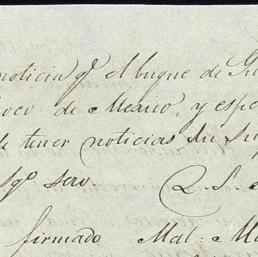 noticia q.e el buque de Gu
oco de Mexico, y espe
de tener noticias su Su
Sg.o sero Q. S.
firmado Mal: M